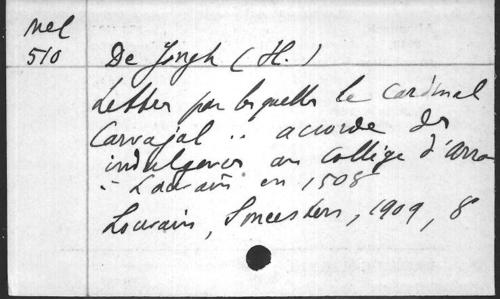 Mel
510
De Jongh (H.)
Lettres par lesquelles le cardinal
Carvajal .. accorde des
indulgences au Collège d'Arra
.. Louvain en 1508
Louvain, Smeesters, 1909, 8°